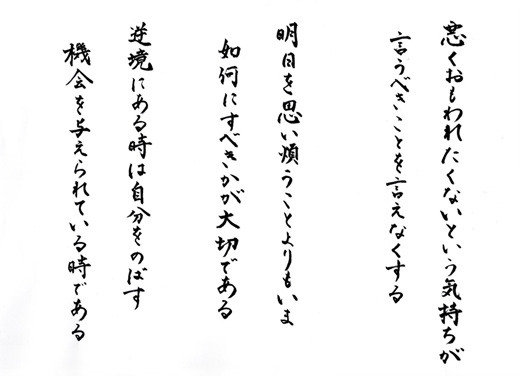 悪くおもわれたくないという気持ちが
言うべきことを言えなくする
明日を思い煩うことよりもいま
如何にすべきかが大切である
逆境にある時は自分をのばす
機会を与えられている時である